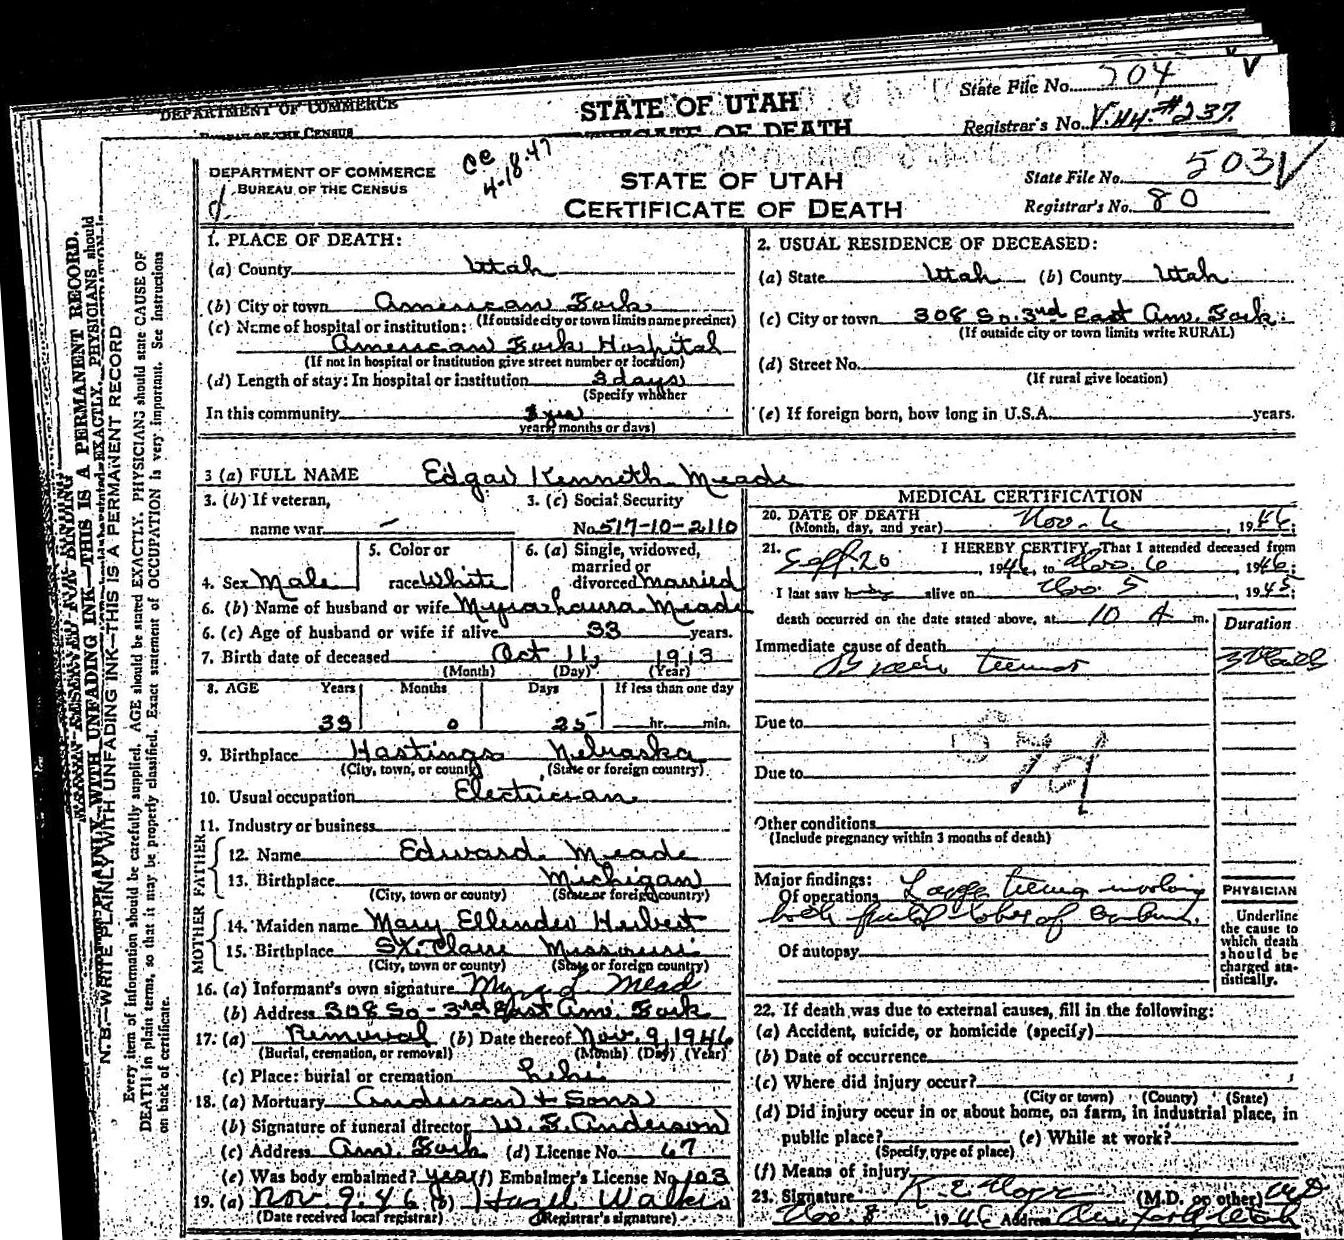 DEPARTMENT OF COMMERCE
BUREAU OF THE CENSUS
STATE OF UTAH
CERTIFICATE OF DEATH
State File No. 204 V
Registrar's No. #237
DEPARTMENT OF COMMERCE
BUREAU OF THE CENSUS
4-18-47
STATE OF UTAH
CERTIFICATE OF DEATH
State File No. 503
Registrar's No. 80
N. B.—WRITE PLAINLY WITH UNFADING INK—THIS IS A PERMANENT RECORD
Every item of information should be carefully supplied. AGE should be stated EXACTLY. PHYSICIANS should state CAUSE OF
DEATH in plain terms, so that it may be properly classified. Exact statement of OCCUPATION is very important. See instructions
on back of certificate.
1. PLACE OF DEATH:
(a) County Utah
(b) City or town American Fork
(If outside city or town limits name precinct)
(c) Name of hospital or institution:
American Fork Hospital
(If not in hospital or institution give street number or location)
(d) Length of stay: In hospital or institution 3 days
(Specify whether
In this community yrs
years, months or days)
2. USUAL RESIDENCE OF DECEASED:
(a) State Utah (b) County Utah
(c) City or town 308 So. 3rd East Am. Fork
(If outside city or town limits write RURAL)
(d) Street No.
(If rural give location)
(e) If foreign born, how long in U.S.A. years.
3 (a) FULL NAME Edgar Kenneth Meade
3. (b) If veteran,
name war —
3. (c) Social Security
No. 517-10-2110
4. Sex Male
5. Color or
race White
6. (a) Single, widowed,
married or
divorced married
6. (b) Name of husband or wife Myra Laura Meade
6. (c) Age of husband or wife if alive 33 years.
7. Birth date of deceased Oct 11, 1913
(Month) (Day) (Year)
8. AGE Years Months Days If less than one day
33 0 25 hr. min.
9. Birthplace Hastings Nebraska
(City, town, or county) (State or foreign country)
10. Usual occupation Electrician
11. Industry or business
FATHER
12. Name Edward Meade
13. Birthplace Michigan
(City, town or county) (State or foreign country)
MOTHER
14. Maiden name Mary Ellender Herbert
15. Birthplace St. Clair Missouri
(City, town or county) (State or foreign country)
16. (a) Informant's own signature Myra L Mead
(b) Address 308 So - 3rd East Am. Fork
17. (a) Removal (b) Date thereof Nov. 9, 1946
(Burial, cremation, or removal) (Month) (Day) (Year)
(c) Place: burial or cremation Lehi
18. (a) Mortuary Anderson & Sons
(b) Signature of funeral director W. E. Anderson
(c) Address Am. Fork (d) License No. 67
(e) Was body embalmed? yes (f) Embalmer's License No. 103
19. (a) Nov. 9-46 (b) Hazel Walker
(Date received local registrar) (Registrar's signature)
MEDICAL CERTIFICATION
20. DATE OF DEATH
(Month, day, and year) Nov. 6, 1946;
21. I HEREBY CERTIFY, That I attended deceased from
Sept. 20, 1946, to Nov. 6, 1946;
I last saw h alive on Nov. 5, 1945;
death occurred on the date stated above, at 10 A m.
Duration
Immediate cause of death
Brain tumor
Due to
Due to
Other conditions
(Include pregnancy within 3 months of death)
Major findings:
Of operations Large tumor involving
both frontal lobes of
Of autopsy
PHYSICIAN
Underline
the cause to
which death
should be
charged sta-
tistically.
22. If death was due to external causes, fill in the following:
(a) Accident, suicide, or homicide (specify)
(b) Date of occurrence
(c) Where did injury occur?
(City or town) (County) (State)
(d) Did injury occur in or about home, on farm, in industrial place, in
public place? (e) While at work?
(Specify type of place)
(f) Means of injury
23. Signature (M.D. or other) MD
Nov. 8 1946 Address